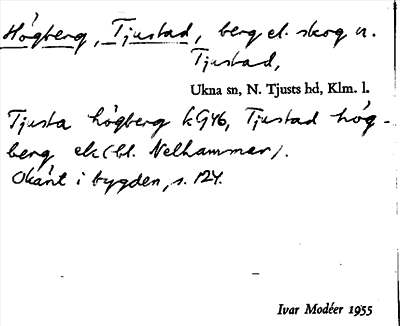 Högberg, Tjustad, berg el. skog n.
Tjustad,
Ukna sn, N. Tjusts hd, Klm. l.
Tjusta högberg kG46, Tjustad hög-
berg ek (bl. Nelhammar).
Okänt i bygden, s. 124.
Ivar Modéer 1955